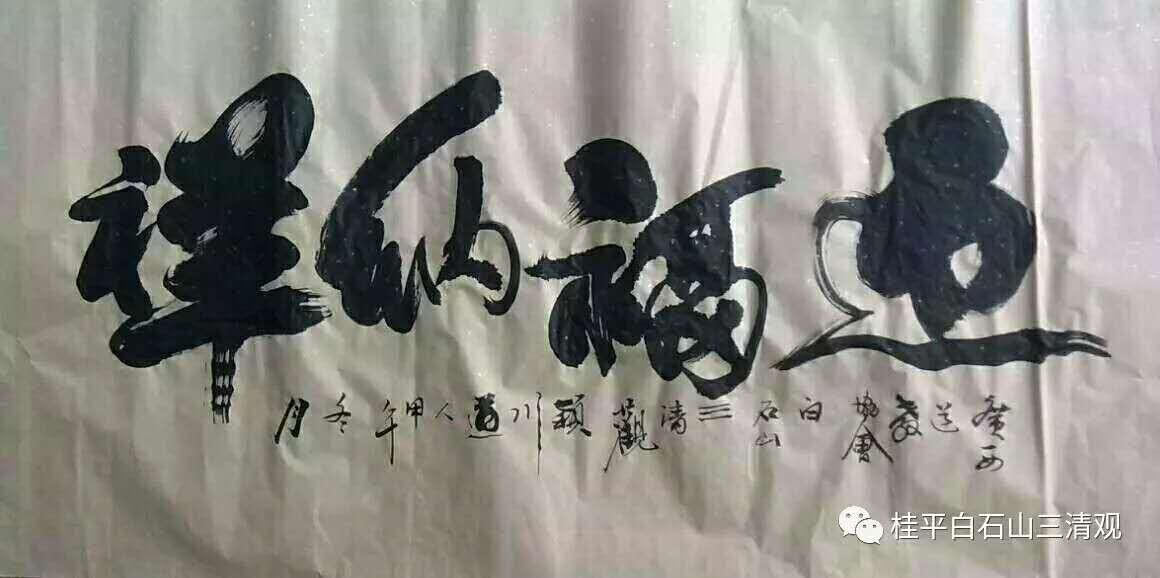 迎福纳祥
广西道教协会白石山三清觀颖川道人甲午冬月
桂平白石山三清观